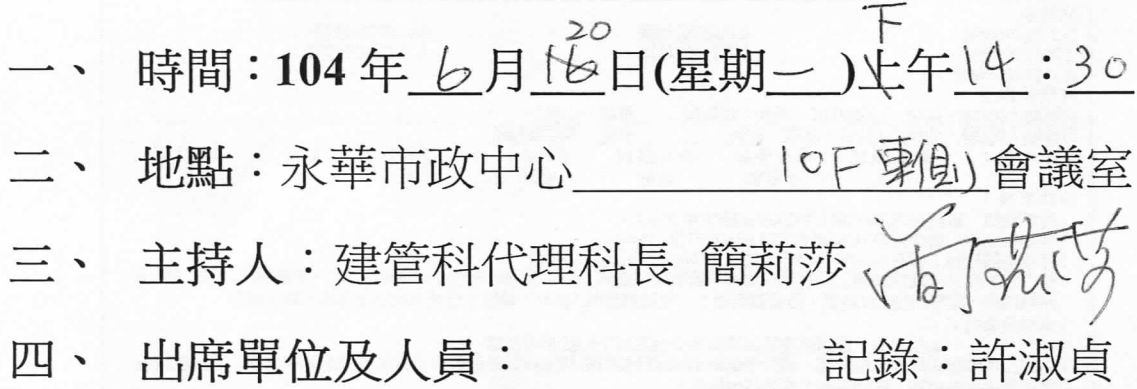 一、 時間：104 年 6 月 20 日(星期一 )下午 14：30
二、 地點：永華市政中心 10F東側 會議室
三、 主持人：建管科代理科長 簡莉莎 簡莉莎
四、 出席單位及人員 記錄：許淑貞